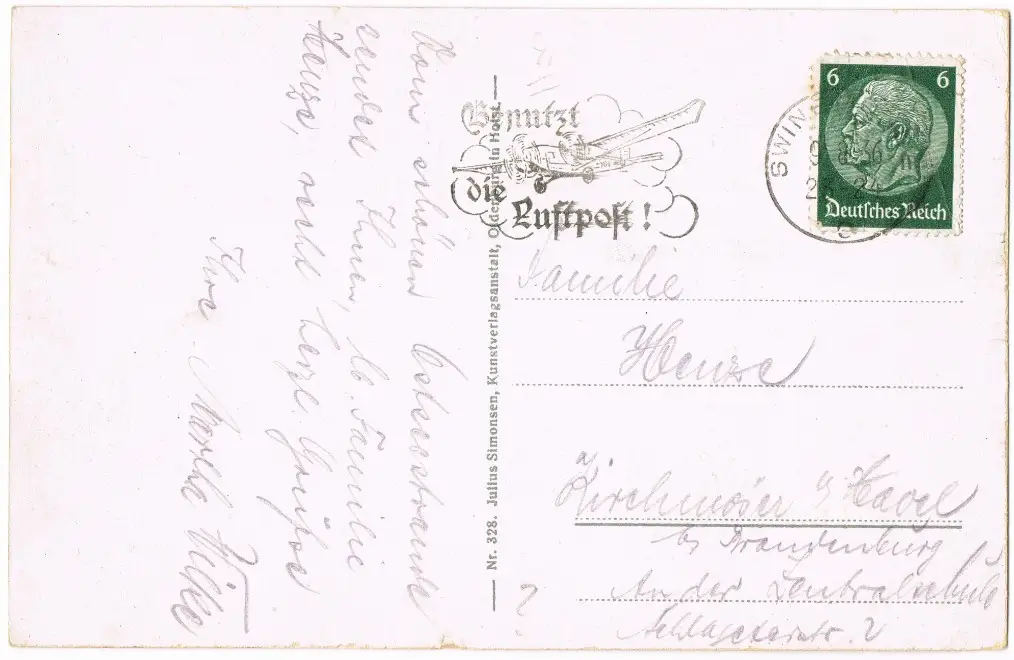 Vom schönen Ostseestrande
sendet Ihnen, lb. Familie
Henze, recht herzl. Grüße
Ihre Martha Wilke
Benutzt
die
Luftpost!
SWIN
6 6
Deutsches Reich
Nr. 328. Julius Simonsen, Kunstverlagsanstalt, Oldenburg in Holst.
Familie
Henze
Kirchmöser a/Havel
b/ Brandenburg
An der Zentralschule
Schlageterstr. 2
2